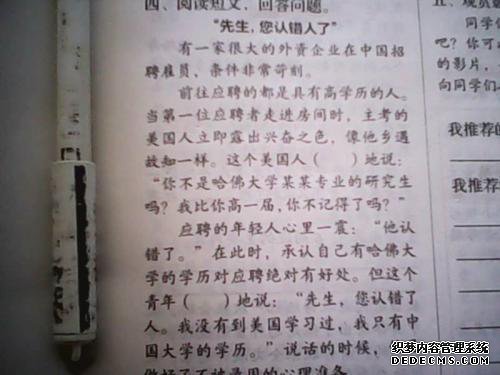 四、阅读短文，回答问题。
“先生，您认错人了”
有一家很大的外资企业在中国招
聘雇员，条件非常苛刻。
前往应聘的都是具有高学历的人。
当第一位应聘者走进房间时，主考的
美国人立即露出兴奋之色，像他乡遇
故知一样。这个美国人（ ）地说：
“你不是哈佛大学某某专业的研究生
吗？我比你高一届，你不记得了吗？”
应聘的年轻人心里一震：“他认
错了。”在此时，承认自己有哈佛大
学的学历对应聘绝对有好处。但这个
青年（ ）地说：“先生，您认错了
人。我没有到美国学习过，我只有中
国大学的学历。”说话的时候，
做好了不被录用的心理准备
五、观赏
同学
吧？你可
的影片，
向同学们
我推荐的
我推荐
织梦内容管理系统
DEDECMS.COM